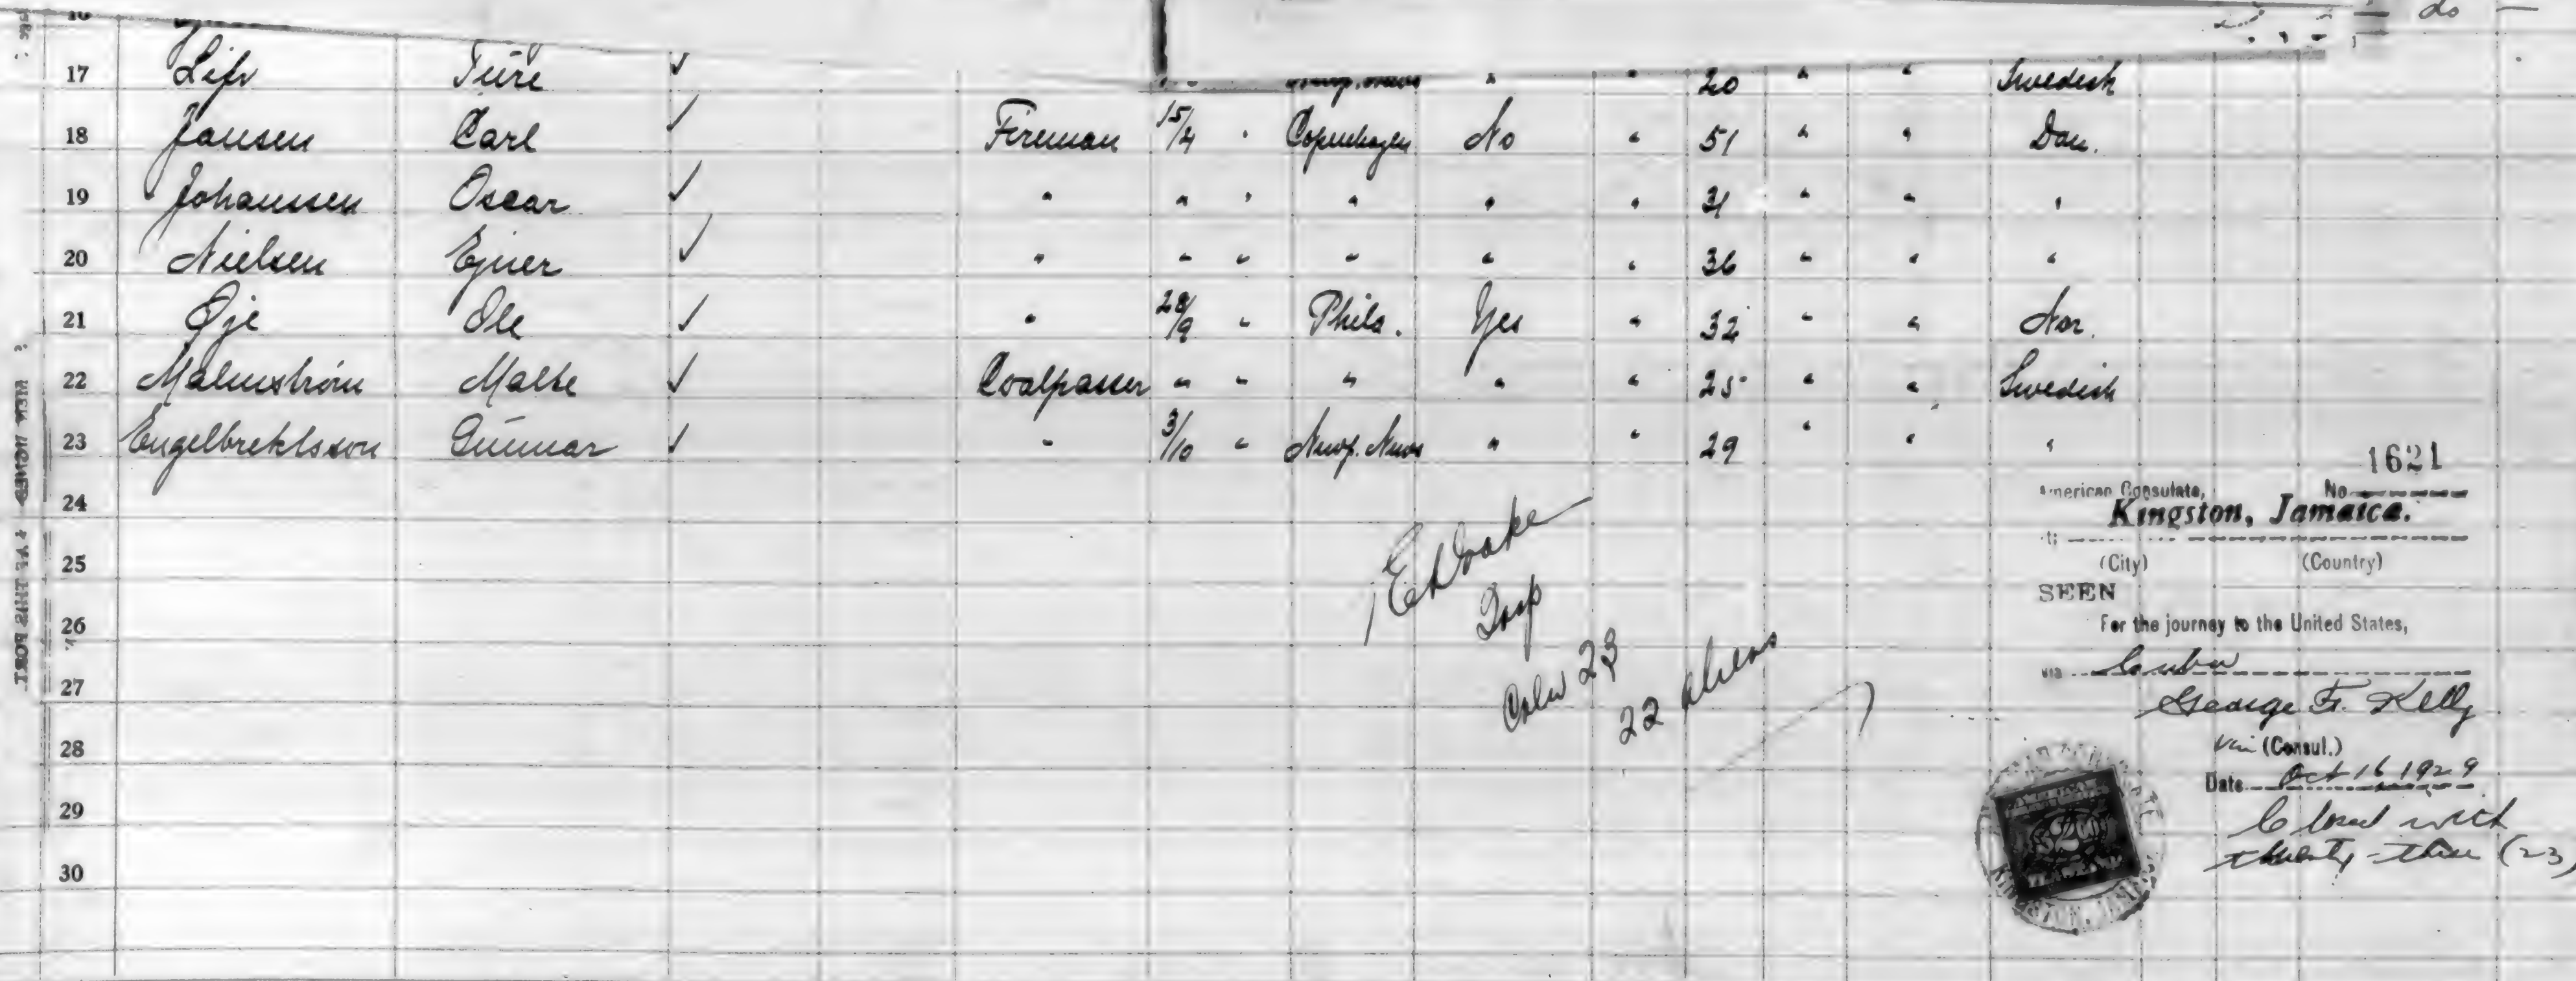 do —
17 Ture ✓ " " 20 " " Swedish
18 Jansen Carl ✓ Fireman 15/4 " Copenhagen No " 51 " " Dan.
19 Johanssen Oscar ✓ " " " " " " 31 " " "
20 Nielsen Ejner ✓ " " " " " " 36 " " "
21 Øje Ole ✓ " 28/9 " Phila. Yes " 32 " " Nor.
22 Malmstrøm Malte ✓ Coalpasser " " " " " 25 " " Swedish
23 Engelbrektsson Gunnar ✓ " 3/10 " Newp. News " " 29 " " "
24
25
26
27
28
29
30
Drake
Insp
23
22 aliens
1621
American Consulate, No
Kingston, Jamaica.
(City) (Country)
SEEN
For the journey to the United States,
via Cuba
George F. Kelly
(Consul.)
Date Oct 16 1929
Closed with
twenty-three (23)